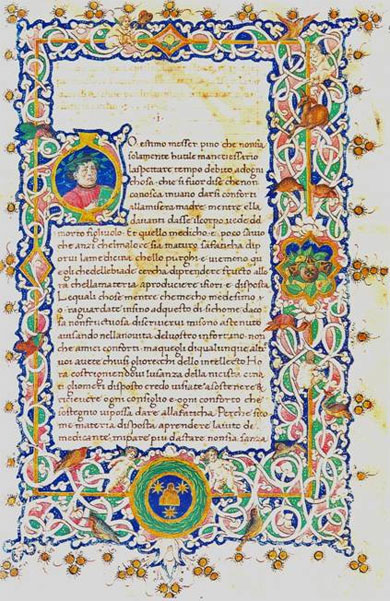 O estimo messer pino che nonsia
solamente hutile manecessario
laspettare tempo debito adogni
chosa. che si fuor dise che non
conosca invano darsi conforti
allamisera madre mentre ella
davanti dasse ilcorpo vede del
morto figliuolo. Et quello medicho e poco savio
che anzi cheimalore sia maturo safaticha dip
durui lamedicina chello purghi. e viemeno qu
egli chedellebiade cercha diprendere fructo alle
ra chellamateria aproducere ifiori e disposta
Lequali chose mentre chemecho medesimo
o raguardate infino adquesto di sichome dacho
sa nonfructuosa discrivervi misono astenuto
avisando nellanovita delvostro infortunio. non
che amici conforti. maquegli diqualunque altro
avute chiusi gliorecchi dello intellecto. Ho
ra costrignendovi lusanza della
ti gliomeri disposto credo visiate asostenere &
ricievere ogni consiglio e ogni conforto che
sostegnio viposa dare allafaticha. Perche sico
me materia disposta aprendere laiute de
medicante. mipare piu dastare nonsia sanza